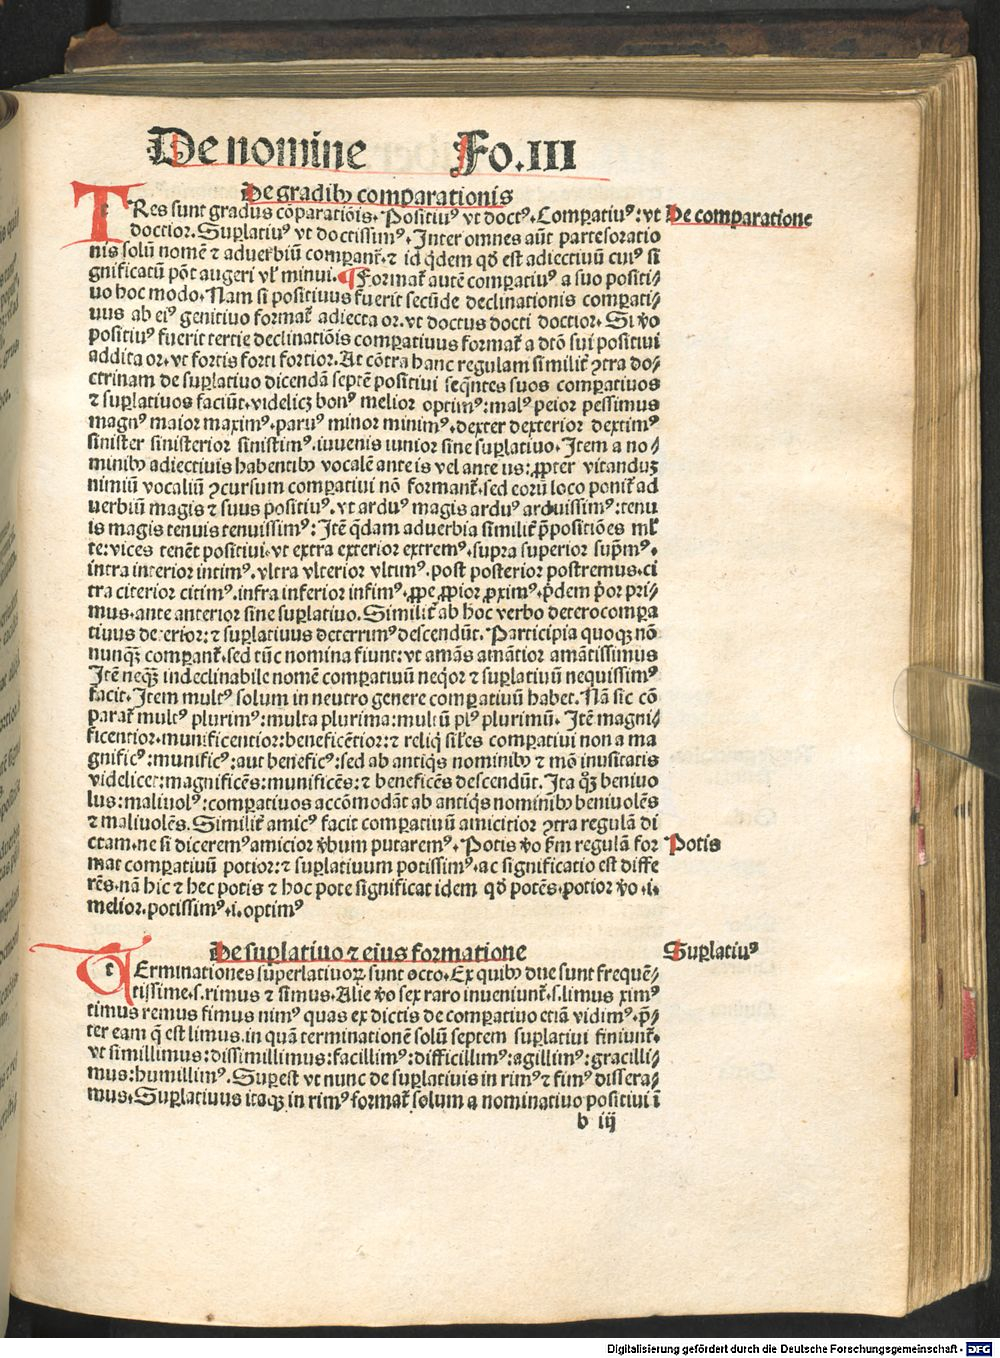 De nomine Fo.III
De gradibꝰ comparationis
TRes sunt gradus cōparatiōis. Positiuꝰ vt doctꝰ. Comꝑatiuꝰ: vt
De comparatione
doctior. Suꝑlatiuꝰ vt doctissimꝰ. Inter omnes aūt partes oratio
nis solū nomē ⁊ aduerbiū comparant᷑. ⁊ id q̄dem qđ est adiectiuū cuiꝰ si
gnificatū pōt augeri vl᷑ minui. ¶Format᷑ autē comꝑatiuꝰ a suo positi⸗
uo hoc modo. Nam si positiuus fuerit secūde declinationis comꝑati⸗
uus ab eiꝰ genitiuo format᷑ adiecta or. vt doctus docti doctior. Si v̄o
positiuꝰ fuerit tertie declinatiōis comꝑatiuus format᷑ a dtō sui positiui
addita or. vt fortis forti fortior. At cōtra hanc regulam similit᷑ ꝯtra do⸗
ctrinam de suꝑlatiuo dicendā septē positiui seq̄ntes suos comꝑatiuos
⁊ suꝑlatiuos faciūt. videlicꝫ bonꝰ melior optimꝰ: malꝰ peior pessimus
magnꝰ maior maximꝰ. paruꝰ minor minimꝰ. dexter dexterior dextimꝰ
sinister sinisterior sinistimꝰ. iuuenis iunior sine suꝑlatiuo. Item a no⸗
minibꝰ adiectiuis habentibꝰ vocalē ante is vel ante us: ꝓpter vitanduꝫ
nimiū vocaliū ꝯcursum comꝑatiui nō formant᷑. sed eorū loco ponit᷑ ad
uerbiū magis ⁊ suus positiuꝰ. vt arduꝰ magis arduꝰ arduissimꝰ: tenu
is magis tenuis tenuissimꝰ: Itē q̄dam aduerbia similit᷑ p̄positiōes ml᷑
te: vices tenēt positiui. vt extra exterior extremꝰ. supra superior sup̄mꝰ.
intra interior intimꝰ. vltra vlterior vltimꝰ. post posterior postremus. ci
tra citerior citimꝰ. infra inferior infimꝰ. ꝓpe ꝓpior ꝓximꝰ. p̄dem p̄or pri⸗
mus. ante anterior sine suꝑlatiuo. Similit᷑ ab hoc verbo detero comꝑa
tiuus deterior: ⁊ suꝑlatiuus deterrimꝰ descendūt. Participia quoqꝫ nō
nunqꝫ comꝑant᷑. sed tūc nomina fiunt: vt amās amātior amātissimus
Itē neqꝫ indeclinabile nomē comꝑatiuū neq̄or ⁊ suꝑlatiuū nequissimꝰ
facit. Item multꝰ solum in neutro genere comꝑatiuū habet. Nā sic cō
parat᷑ multꝰ plurimꝰ: multa plurima: multū plꝰ plurimū. Itē magni⸗
ficentior. munificentior: beneficētior: ⁊ reliq̄ sil᷑es comꝑatiui non a ma
gnificꝰ: munificꝰ: aut beneficꝰ: sed ab antiq̄s nominibꝰ ⁊ mō inusitatis
videlicet: magnificēs: munificēs: ⁊ beneficēs descendūt. Ita qꝫ beniuo
lus: maliuolꝰ: comꝑatiuos accōmodāt ab antiq̄s nominībꝰ beniuolēs
⁊ maliuolēs. Similit᷑ amicꝰ facit comꝑatiuū amicitior ꝯtra regulā di
ctam. ne si diceremꝰ amicior v̄bum putaremꝰ. Potis v̄o ẜm regulā for
Potis
mat comꝑatiuū potior: ⁊ suꝑlatiuum potissimꝰ. ac significatio est diffe
rēs. nā hic ⁊ hec potis ⁊ hoc pote significat idem qđ potēs. potior v̄o .i.
melior. potissimꝰ .i. optimꝰ
De suꝑlatiuo ⁊ eius formatione
Suꝑlatiuꝰ
TErminationes superlatiuoꝝ sunt octo. Ex quibꝰ due sunt frequē⸗
tissime. s. rimus ⁊ simus. Alie v̄o sex raro inueniunt᷑. s. limus ximꝰ
timus remus fimus nimꝰ quas ex dictis de comꝑatiuo etiā vidimꝰ. p̄⸗
ter eam q̄ est limus. in quā terminationē solū septem suꝑlatiui finiunt᷑.
vt simillimus: dissimillimus: facillimꝰ: difficillimꝰ: agillimꝰ: gracilli⸗
mus: humillimꝰ. Suꝑest vt nunc de suꝑlatiuis in rimꝰ ⁊ simꝰ dissera⸗
mus. Suꝑlatiuus itaqꝫ in rimꝰ format᷑ solum a nominatiuo positiui ī
b iij
Digitalisierung gefördert durch die Deutsche Forschungsgemeinschaft - DFG